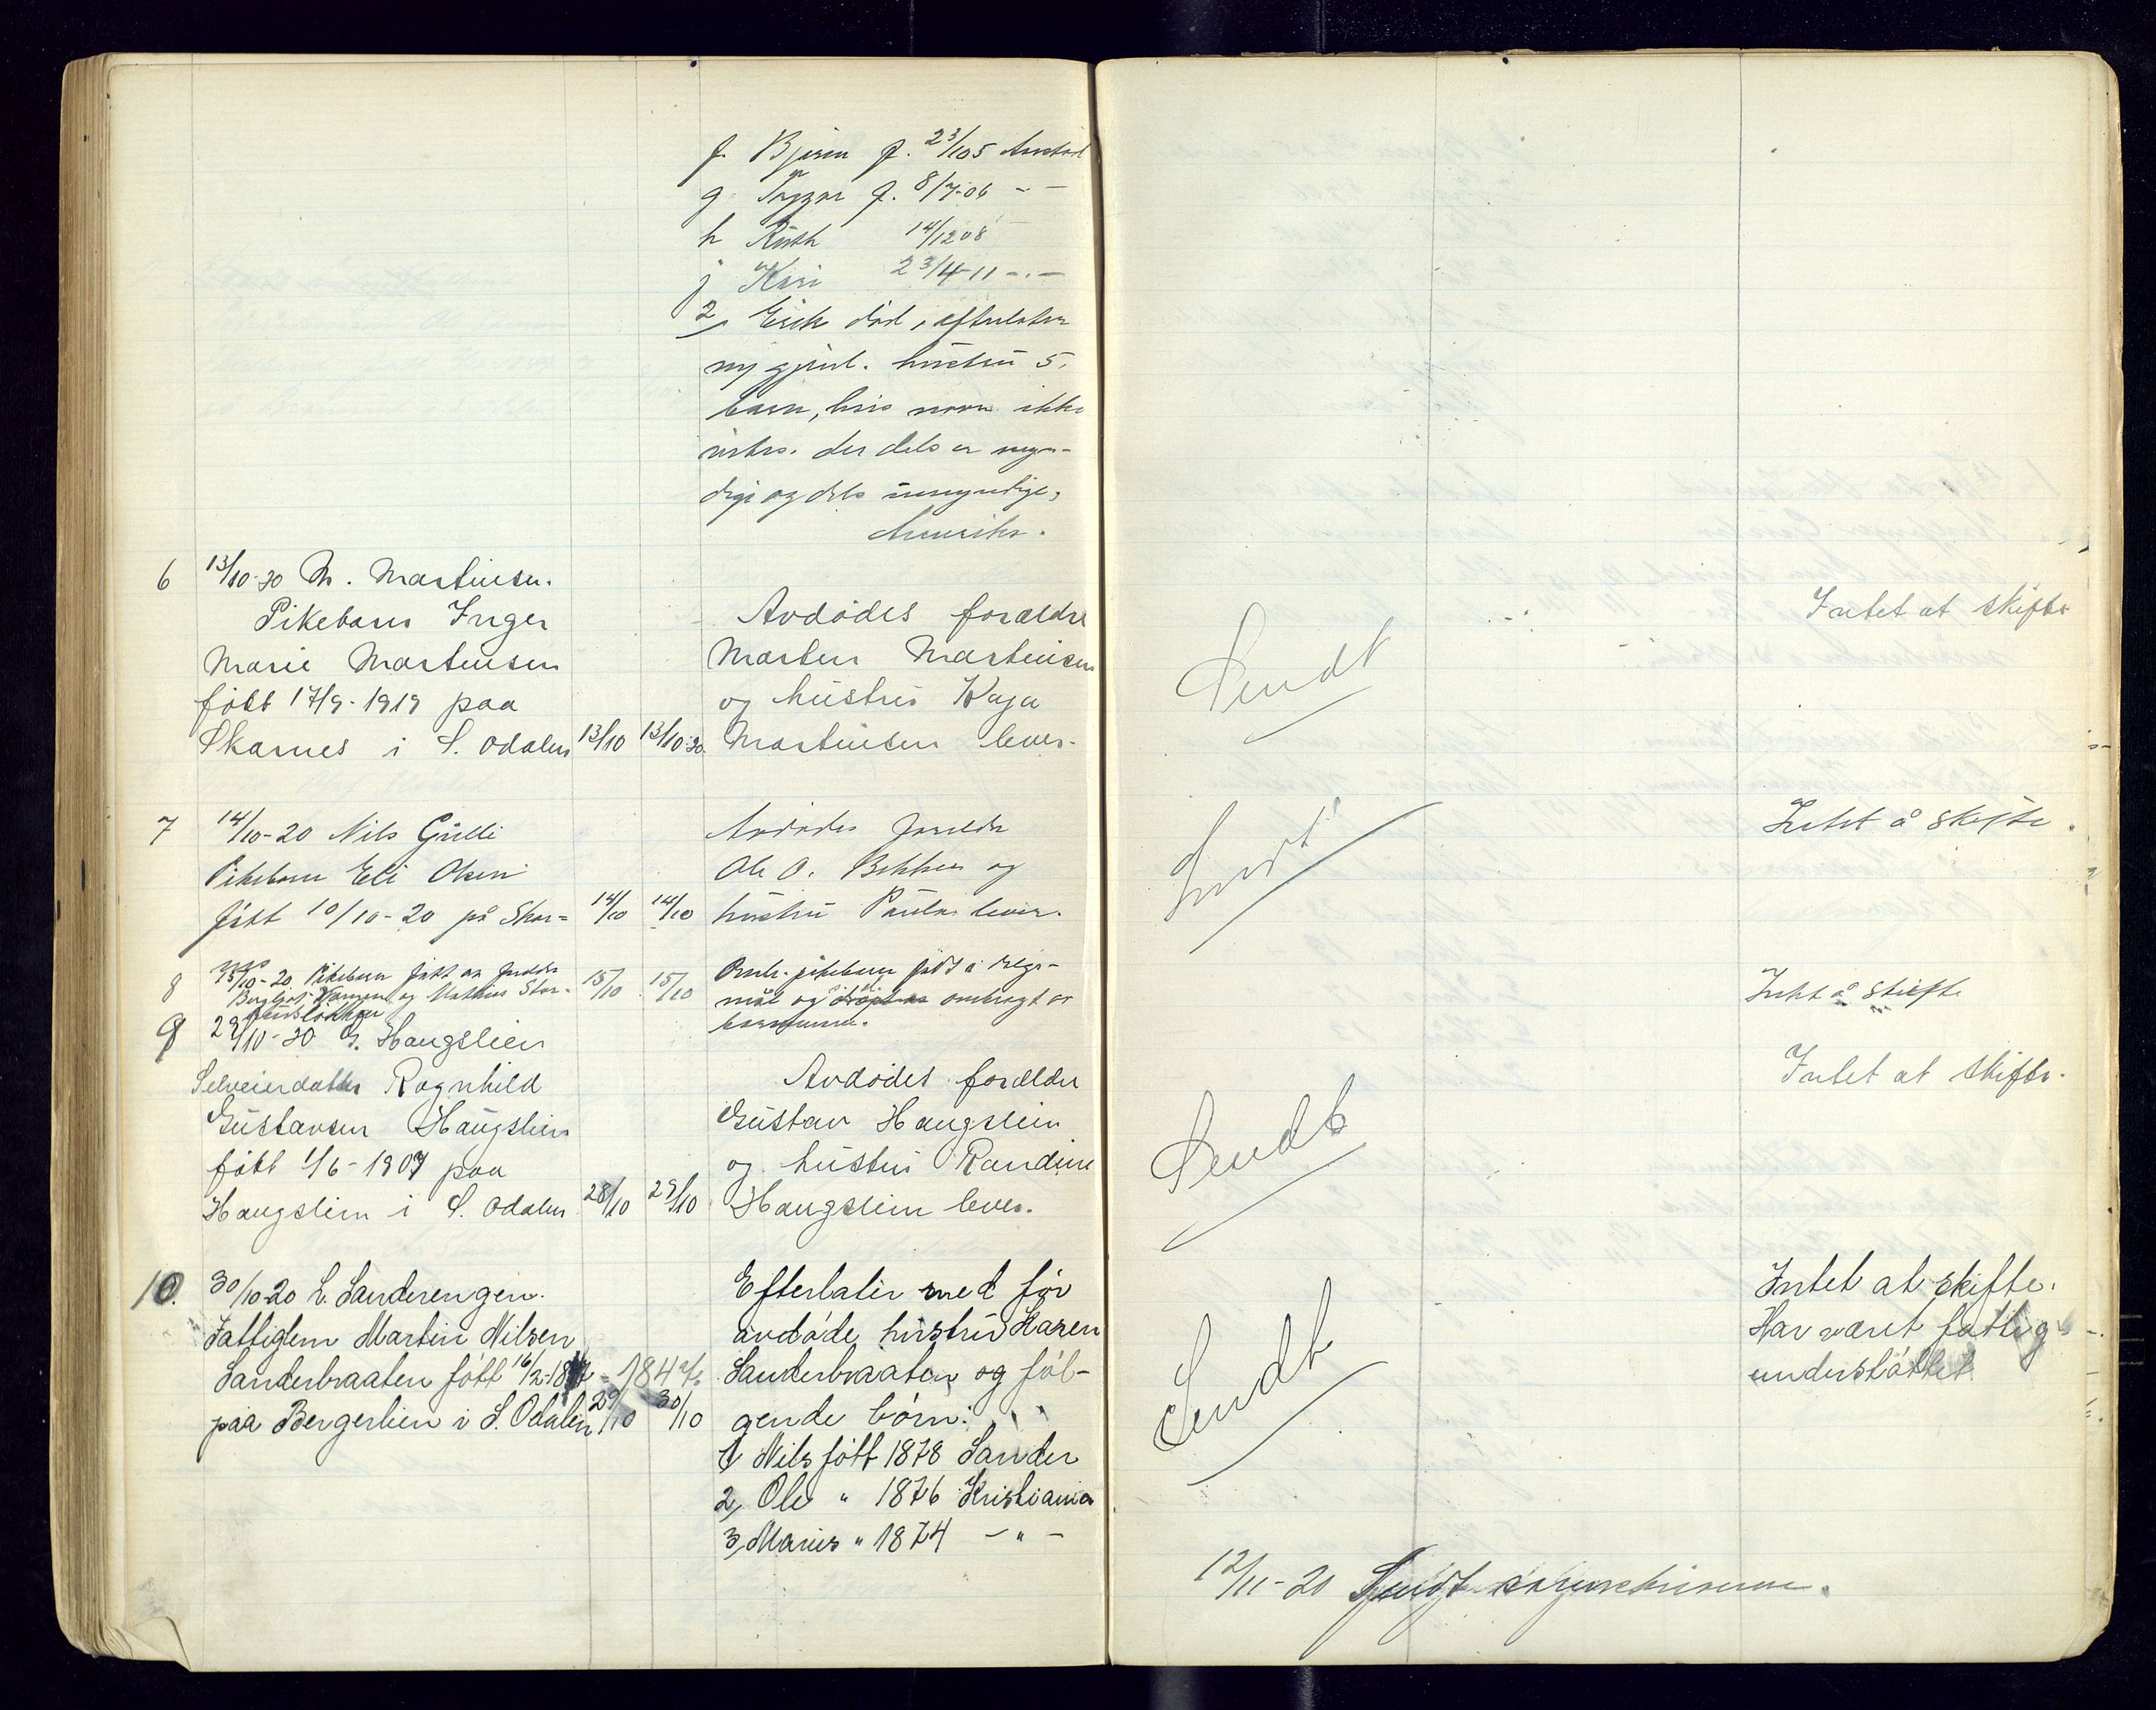 f. Bjørn f. 23/1 05
g. f. 8/7-06 - -
h Ruth 14/12 08
j Kari 23/4-11 -.-
2, Erik død, efterlater
hustru 5
barn, hvis navn ikke
der dels er myn-
dige og dels umyndige,
Amerika.
6 13/10-20 M. Martinsen.
Pikebarn Inger
Marie Martinsen
født 17/9-1919 paa
Skarnes i S. Odalen 13/10 13/10-20.
Avdødes forældre
Marten Martinsen
og hustru Kaja
Martinsen lever.
Sendt
Intet at skifte
7 14/10-20 Nils Gulli
Pikebarn Eli Olsen
født 10/10-20 på Skar=
nes
14/10 14/10
Avdødes foreldre
Ole O. Bekken og
hustru Paula lever.
Sendt
Intet å skifte.
8 15/10-20. Pikebarn født av
og Mathias Stor-
15/10 15/10
pikebarn født i dølgs-
mål og ombragt av
barnemoren.
Intet å skifte
9 29/10-20 G. Haugslien
Selveierdatter Ragnhild
Gustavsen Haugslien
født 1/6-1907 paa
Haugslien i S. Odalen 28/10 29/10
Avdødes forældre
Gustav Haugslien
og hustru Randine
Haugslien lever.
Sendt
Intet at skifte.
10. 30/10-20 L. Sanderengen.
Fattiglem Martin Nilsen
Sanderbraaten født 16/2-18 = 184
paa Bergerlien i S. Odalen 29/10 30/10
Efterlater med før
avdøde hustru Karen
Sanderbraaten og føl-
gende børn:
1, Nils født 1878 Sander
2, Ole " 1876 Kristiania
3, Marius " 1874 - " -
Sendt
Intet at skifte.
Har været fattig-
understøttet
12/11-20 Sendt sorenskriveren.